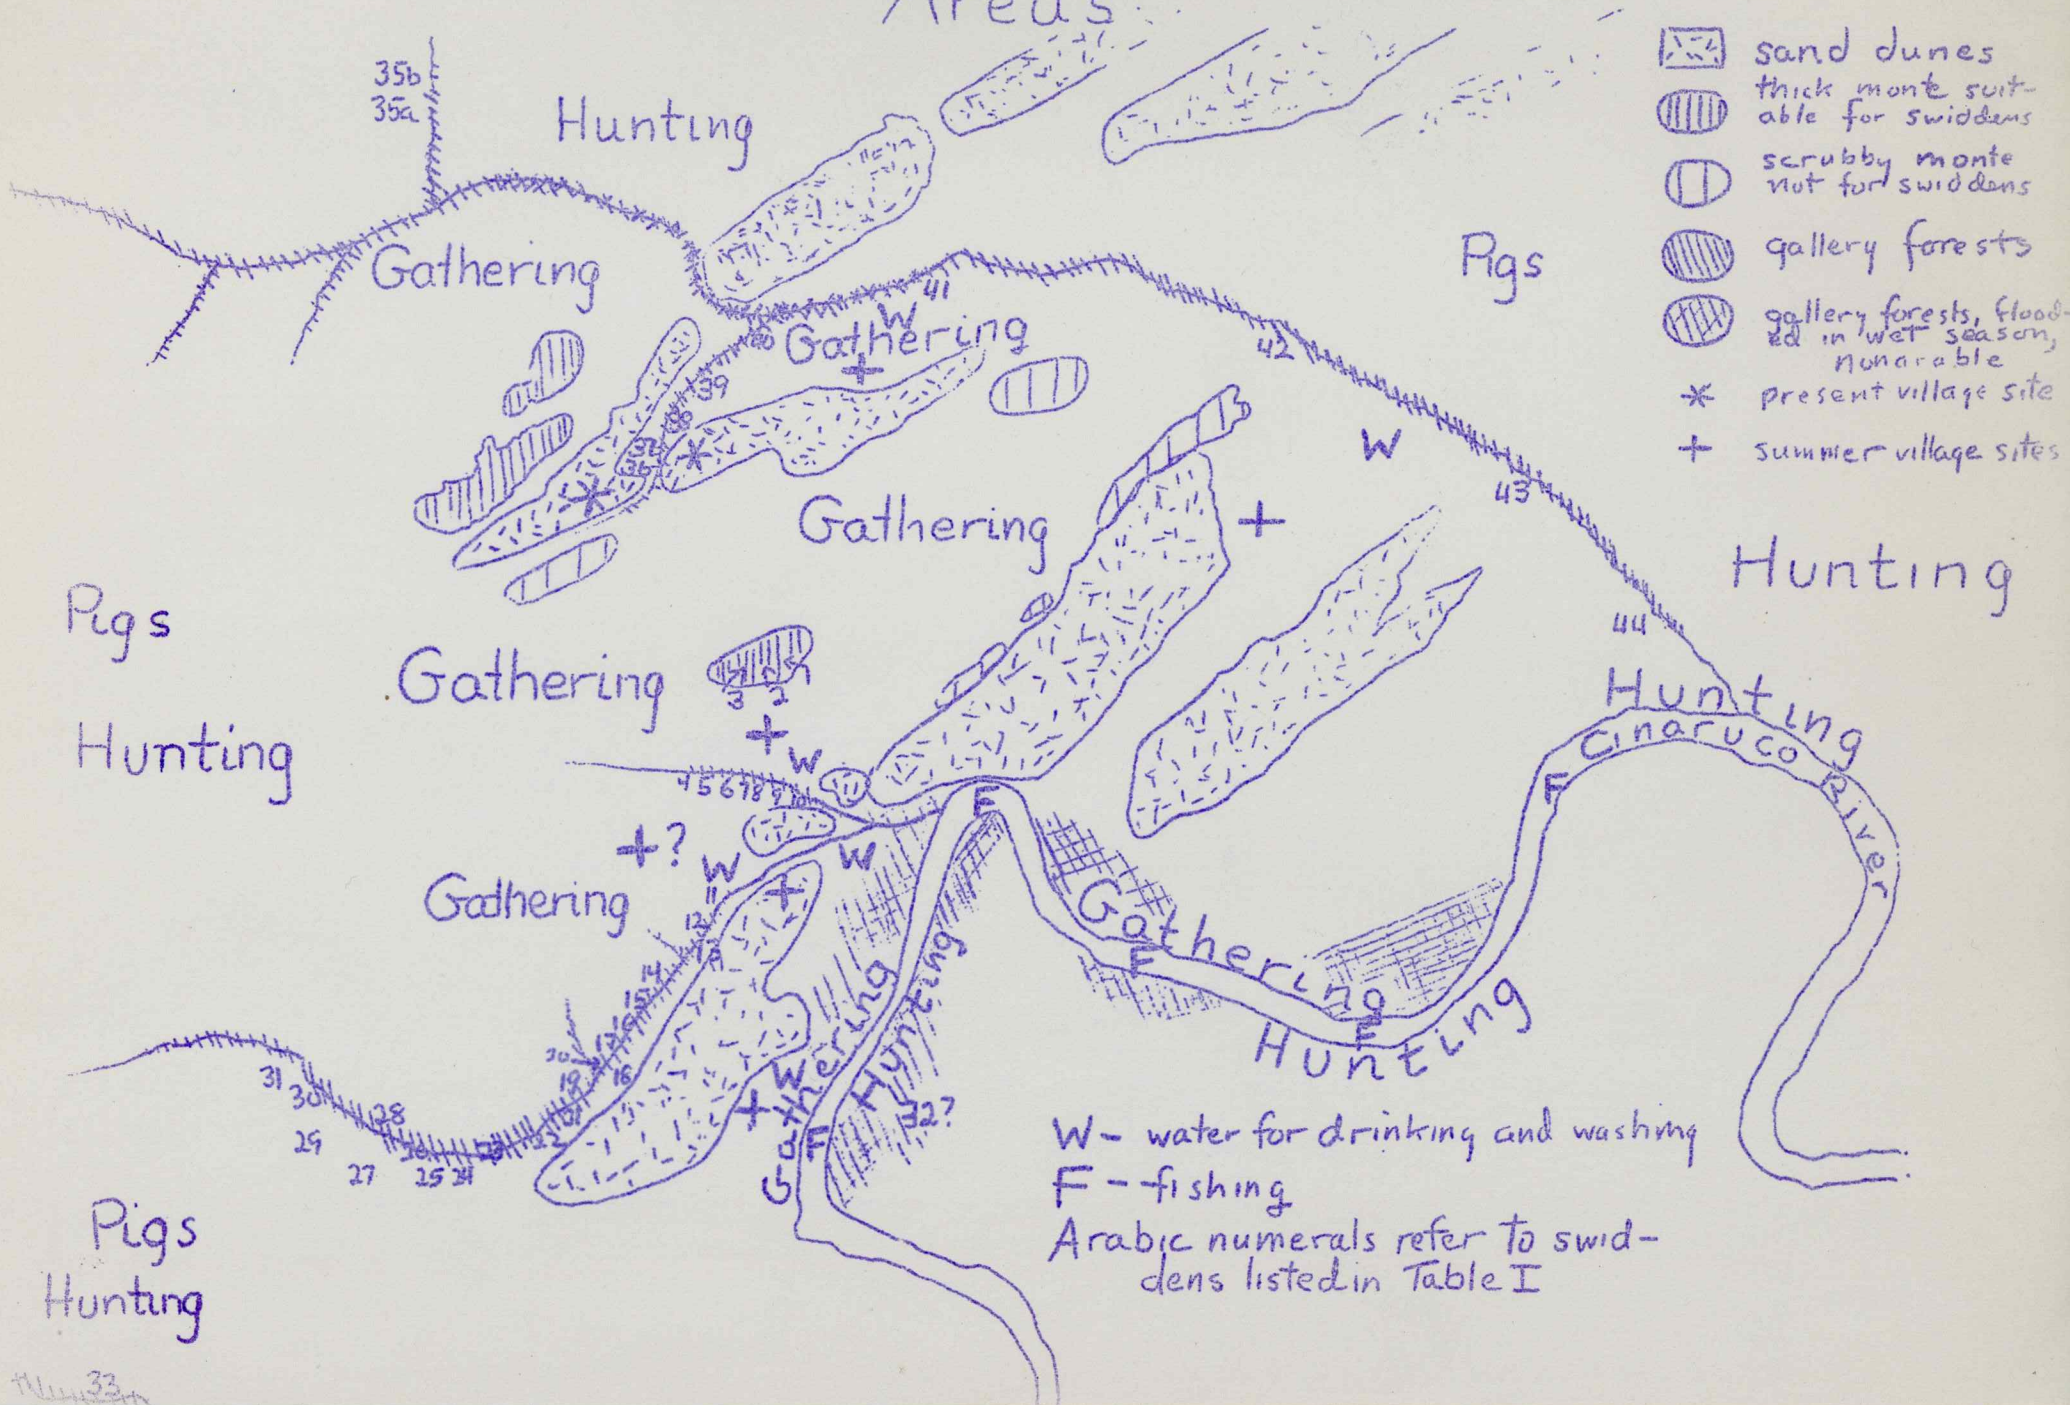 Areas
sand dunes
thick monte suit-
able for swiddens
scrubby monte
not for swiddens
gallery forests
gallery forests, flood-
ed in wet season,
nonarable
* present village site
+ summer village sites
35b
35a
Hunting
Gathering
Pigs
41
W
40
Gathering
+
42
39
38
37
36
*
*
W
43
Gathering
+
Hunting
Pigs
44
Gathering
3 2 1
Hunting
+
W
Hunting
Cinaruco River
4 5 6 7 8 9 10
F
F
+?
W
W
Gathering
11
+
12
13
14
15
Gathering
F
Hunting
F
Gathering
Hunting
W
+
F
32?
20
19
18
31
30
29
28
27
25 24
Pigs
Hunting
33
W - water for drinking and washing
F - fishing
Arabic numerals refer to swid-
dens listed in Table I